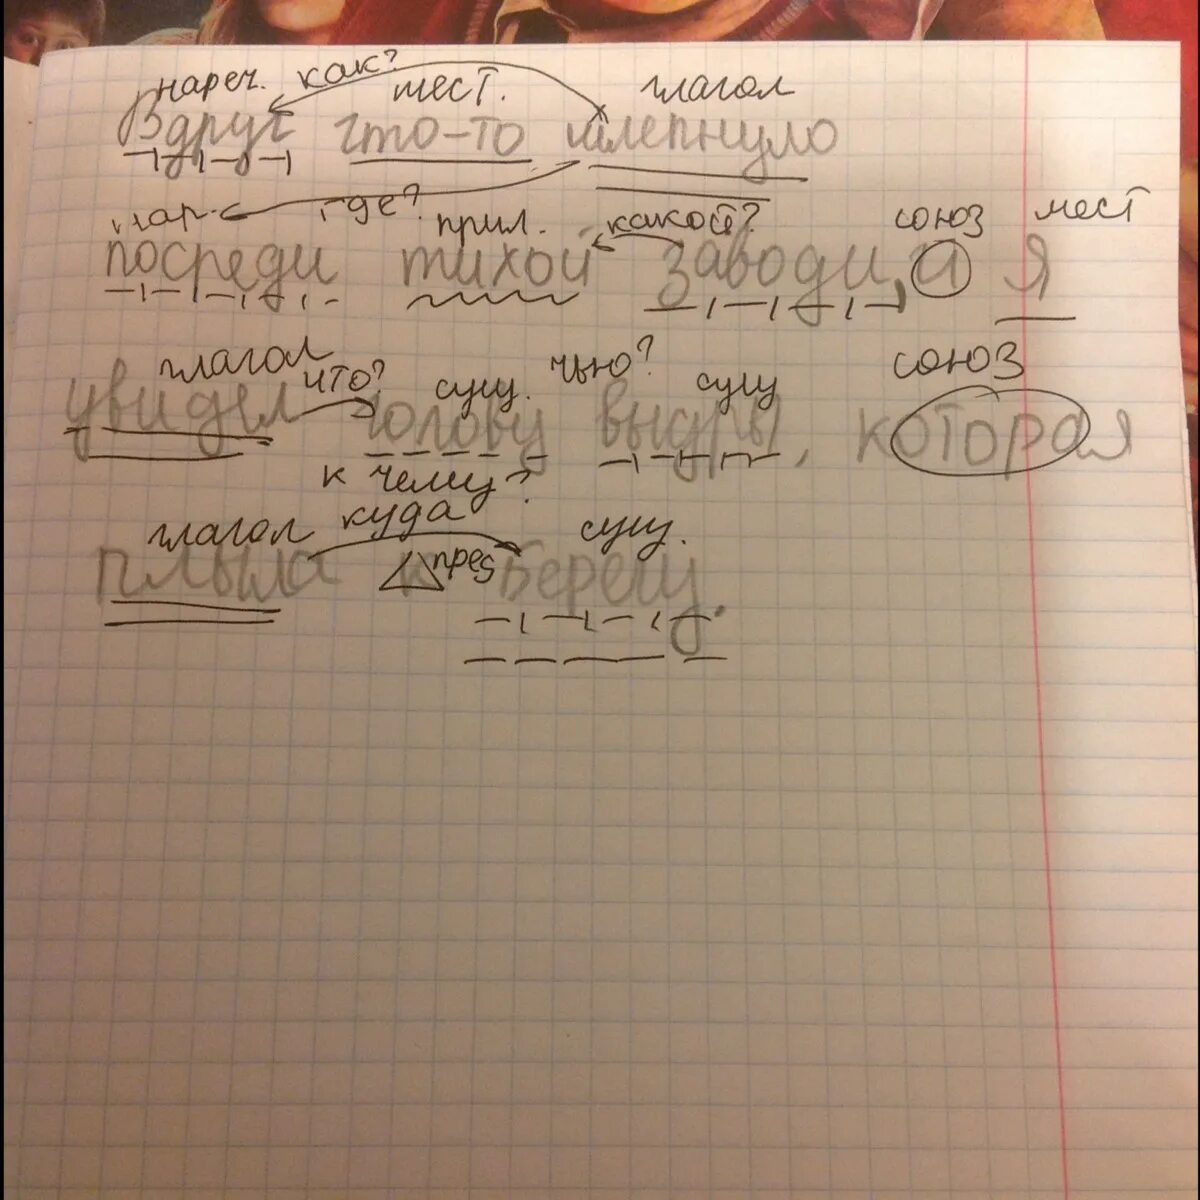 нареч. как? мест. глагол
Вдруг что-то шлепнуло
нар. где? прил. какой? союз мест
посреди тихой заводи, и я
глагол что? сущ. чью? сущ союз
увидел голову выдры, которая
к чему?
глагол куда сущ.
плыла к берегу.
пред